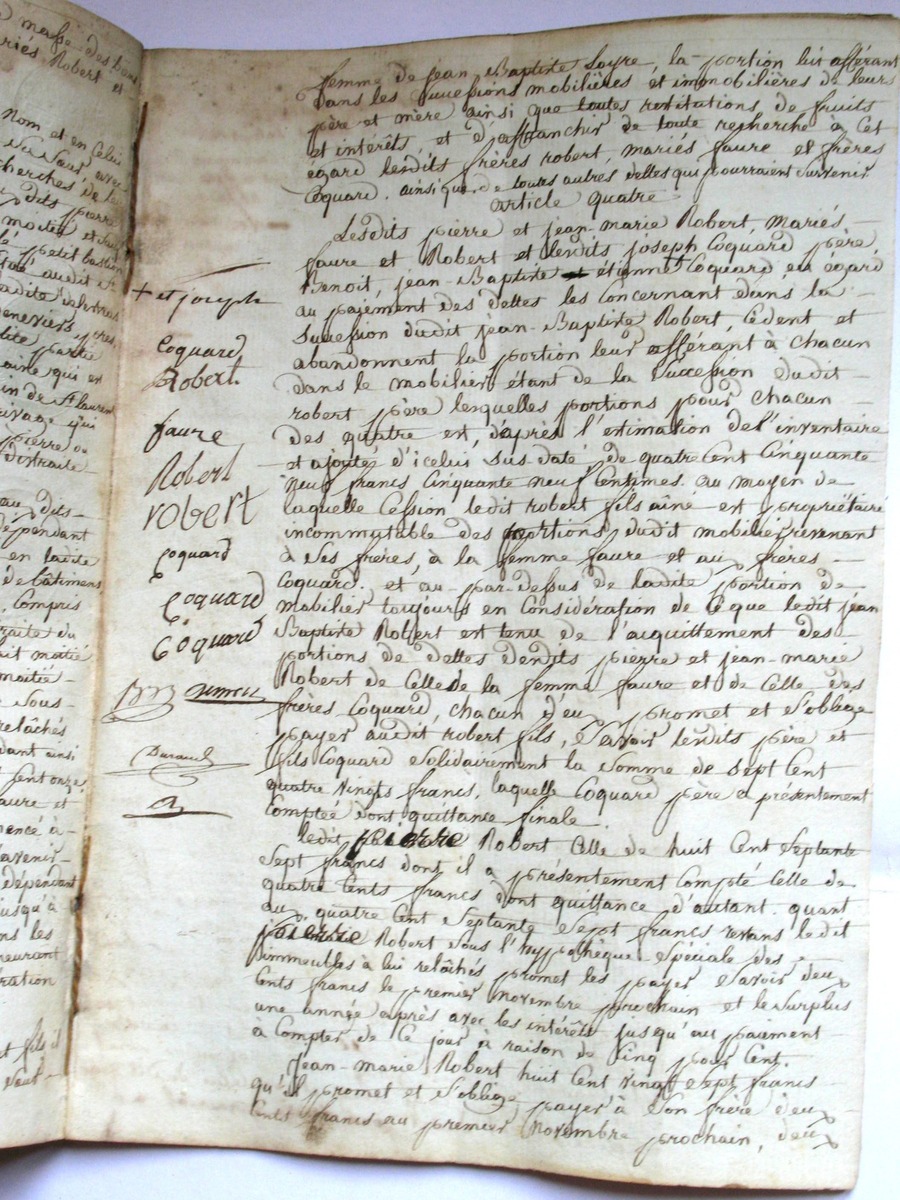 masse des biens
mariés Robert
et
nom et en celui
herches de
dits pierre
moitié et
petit bastion
audit
partie
qui est
in de st laurent
pierre
distraite
au dits
dépendant
en ladite
de bâtimens
Compris
raite du
ait moitié
moitié
Sous
relâchés
dant ainsi
Cent onze
faure et
mencé à
avenir
dépendant
jusqu'à
ns les
meurant
ration
et fils il
femme de jean Baptiste Loyre, la portion lui afférant
dans les successions mobilières et immobilières de leurs
père et mère ainsi que toutes restitutions de fruits
et intérêts, et d'affranchir de toute recherche à cet
égard lesdits frères robert, mariés faure et frères
Coquard. ainsi que de toutes autres dettes qui pourraient survenir
article quatre
Lesdits pierre et jean-marie Robert, mariés
faure et Robert et lesdits joseph Coquard père
Benoit, jean-Baptiste étienne + Coquard en égard
au paiement des dettes les Concernant dans la
succession dudit jean-Baptiste Robert, cèdent et
abandonnent la portion leur afférant à chacun
dans le mobilier étant de la succession dudit
robert père lesquelles portions pour chacun
des quatre est, d'après l'estimation de l'inventaire
et ajouté d'icelui sus daté, de quatre Cent Cinquante
neuf francs Cinquante neuf Centimes. au moyen de
laquelle Cession ledit robert fils ainé est propriétaire
incommutable des portions dudit mobilier revenant
à ses frères, à la femme faure et au frères
Coquard. et au-par-dessus de ladite portion de
mobilier toujours en Considération de ce que ledit jean
Baptiste Robert est tenu de l'acquittement des
portions de dettes desdits pierre et jean-marie
Robert de Celles de la femme faure et de Celle des
frères Coquard, chacun d'eux promet et s'oblige
payer audit robert fils, Savoir lesdits père et
fils Coquard solidairement la somme de Sept Cent
quatre vingts francs, laquelle Coquard père a présentement
Comptée dont quittance finale.
ledit pierre Robert Celle de huit Cent Septante
Sept francs dont il a présentement Compté Celle de
quatre Cents francs dont quittance d'autant. quant
au quatre Cent Septante Sept francs restans ledit
pierre Robert sous l'hypothèque Spéciale des
immeubles à lui relâchés promet les payer Savoir deux
Cents francs le premier novembre prochain et le Surplus
une année après avec les intérêts jusqu'au paiement
à Compter de Ce jour à raison de Cinq pour Cent.
Jean-marie Robert huit Cent vingt Sept francs
qu'il promet et s'oblige payer à Son frère deux
Cents francs au premier novembre prochain, deux
+ et joseph
Coquard
Robert
faure
Robert
robert
coquard
Coquard
Coquard
Durand